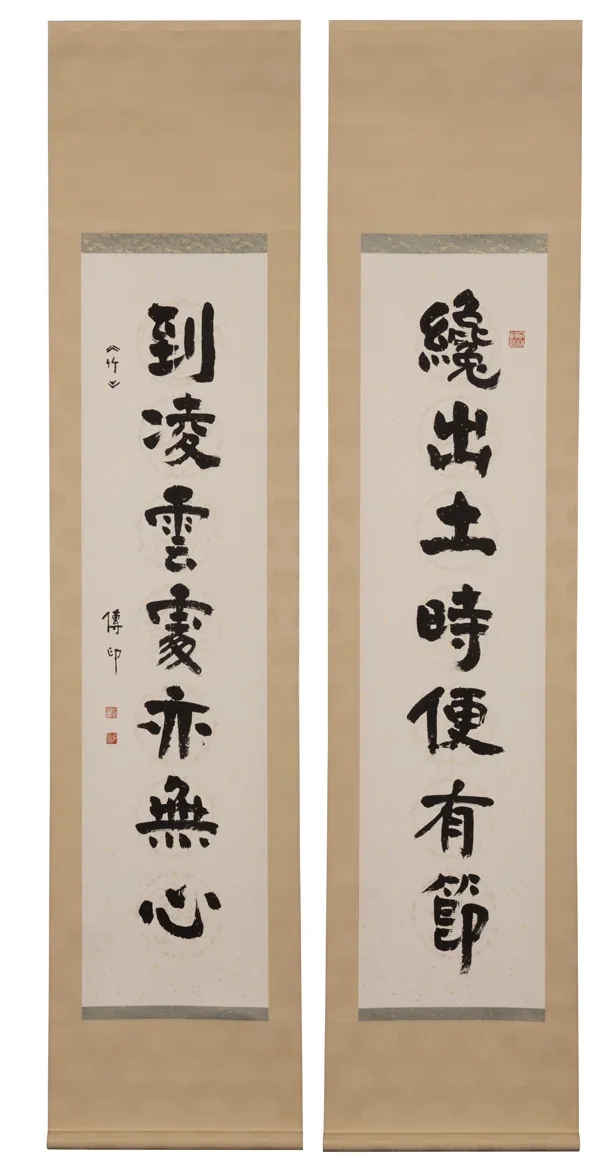 纔出土時便有節
到凌雲處亦無心
《竹》
傳印